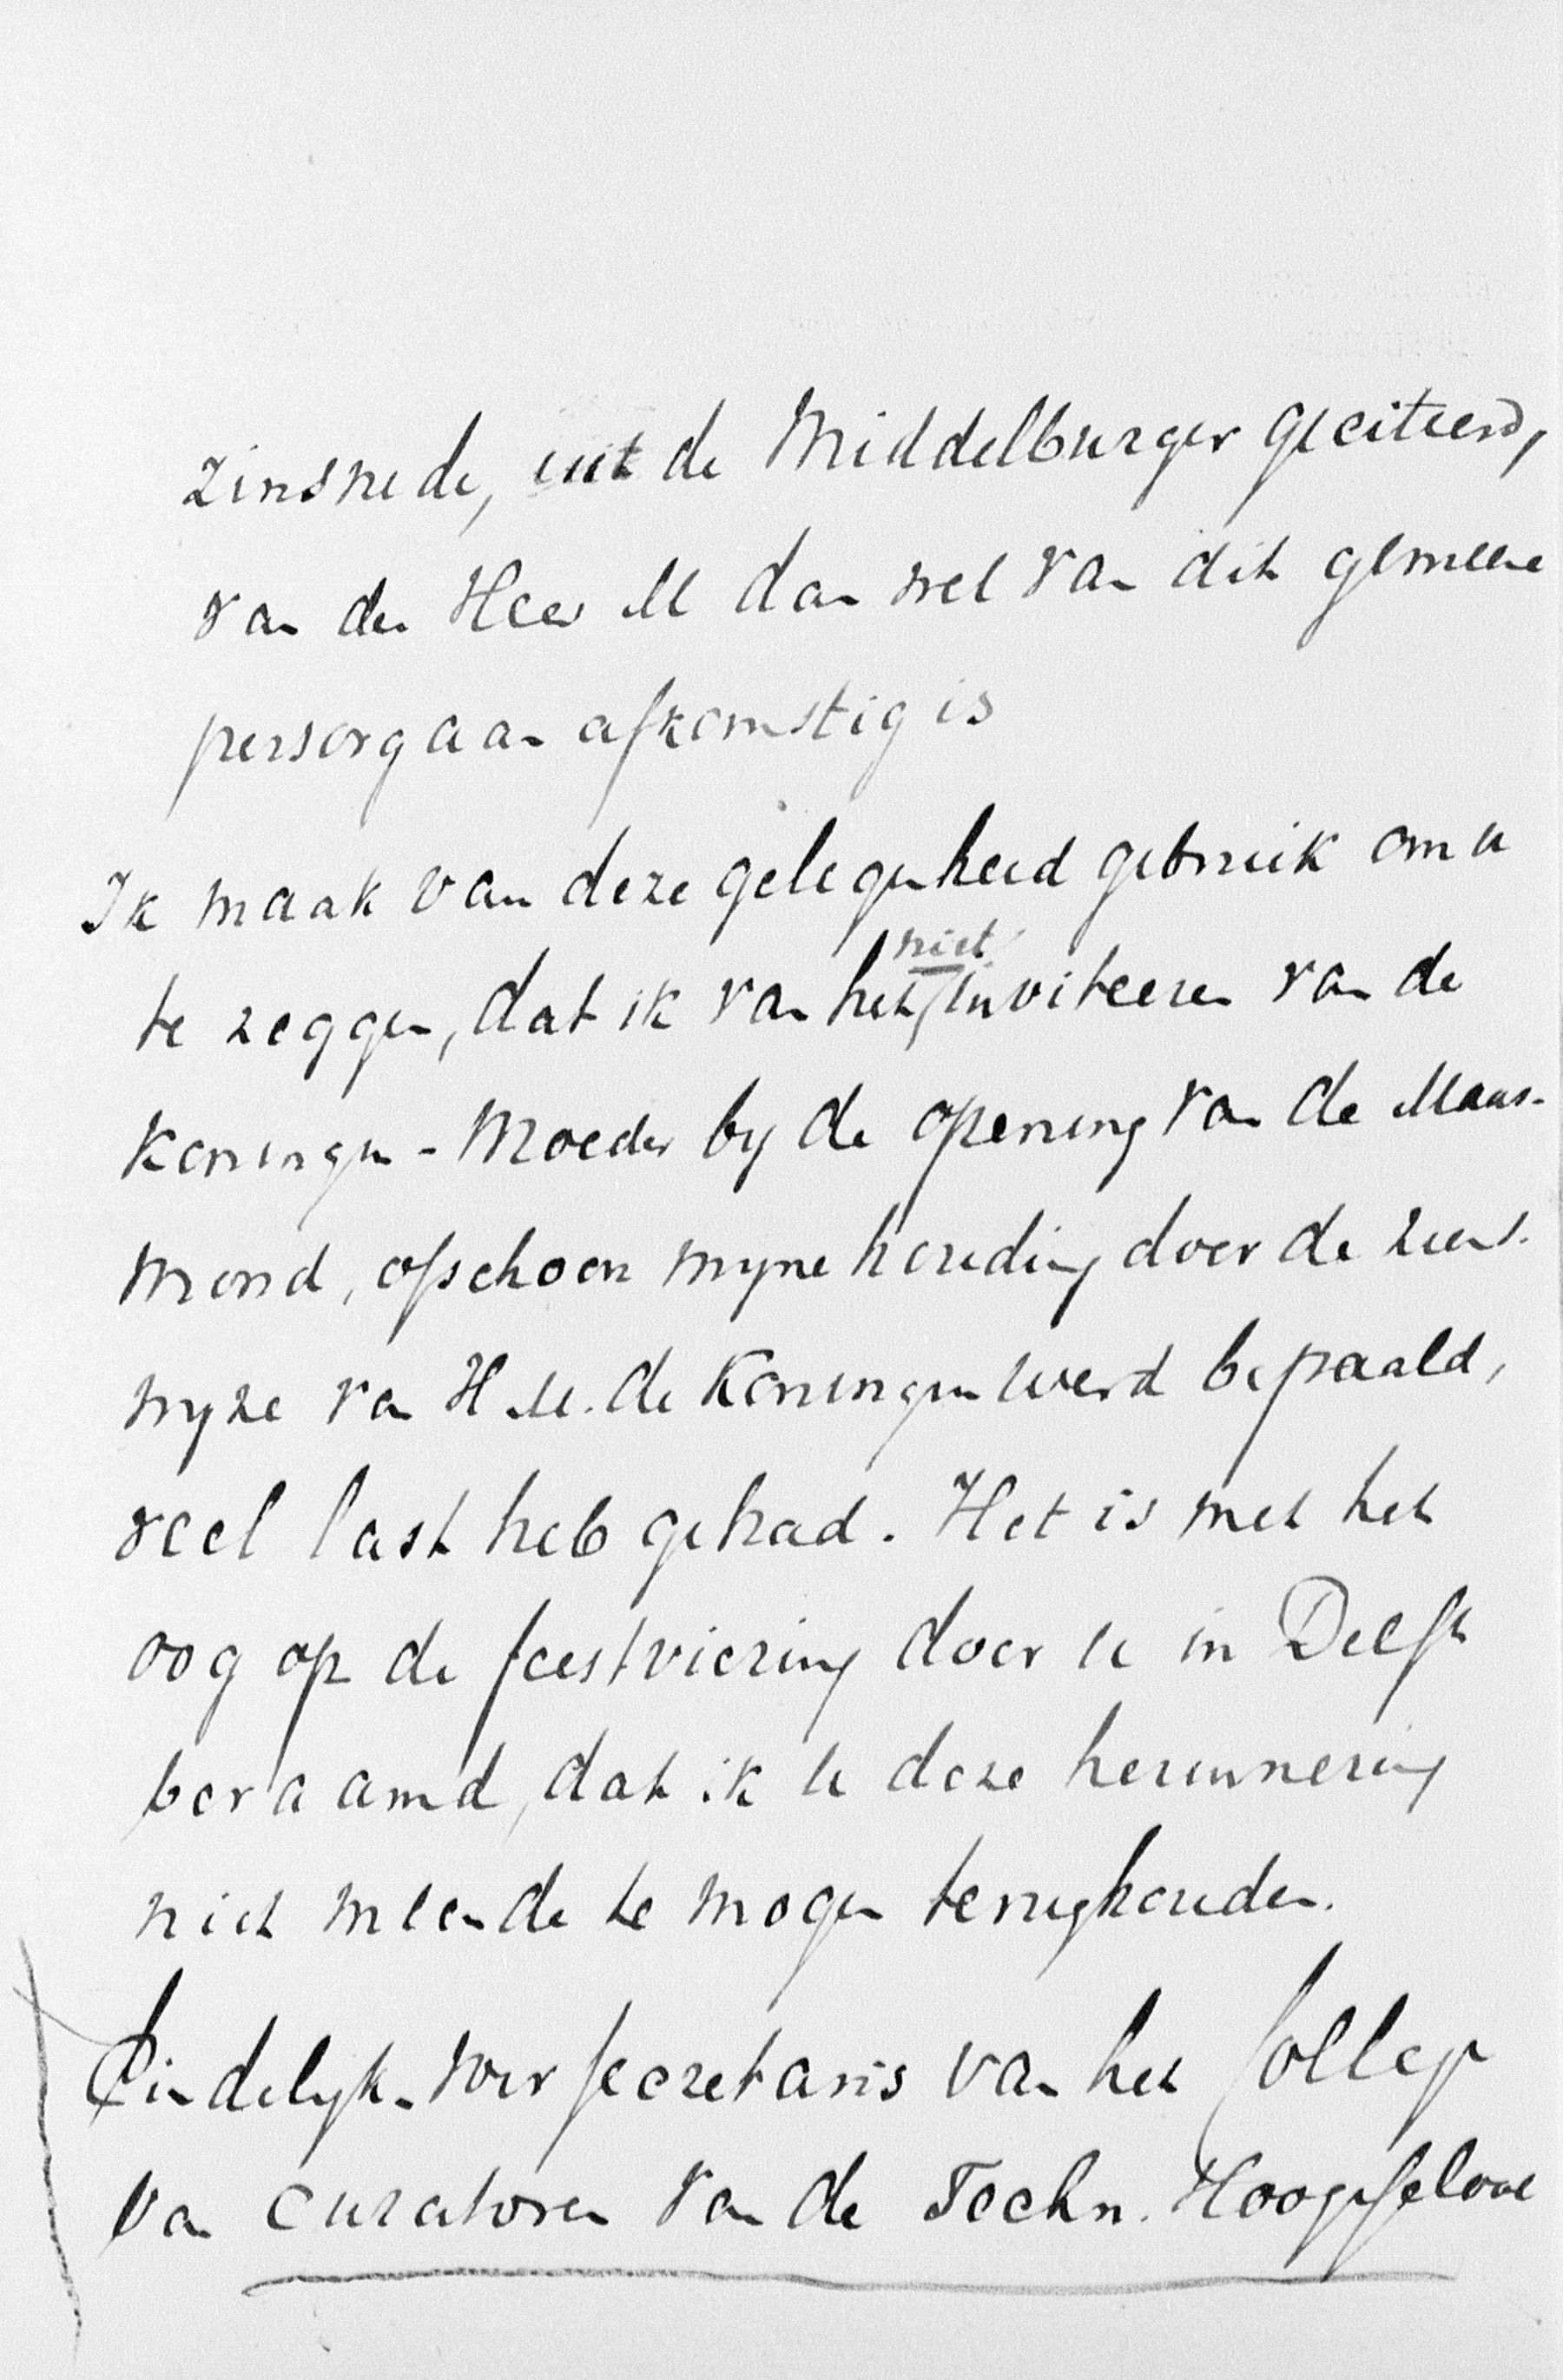 zinsnede, uit de Middelburger geciteerd,
van den Heer M dan wel van dit gemeene
persorgaan afkomstig is
Ik maak van deze gelegenheid gebruik om u
te zeggen, dat ik van het niet inviteeren van de
Koningin-Moeder by de opening van de Maas-
mond, ofschoon myne houding door de ziens-
wyze van H.M. de Koningin werd bepaald,
veel last heb gehad. Het is met het
oog op de feestviering door u in Delft
beraamd, dat ik u deze herinnering
niet meende te mogen terughouden.
Eindelyk. Voor secretaris van het College
van curatoren van de Techn. Hoogeschool